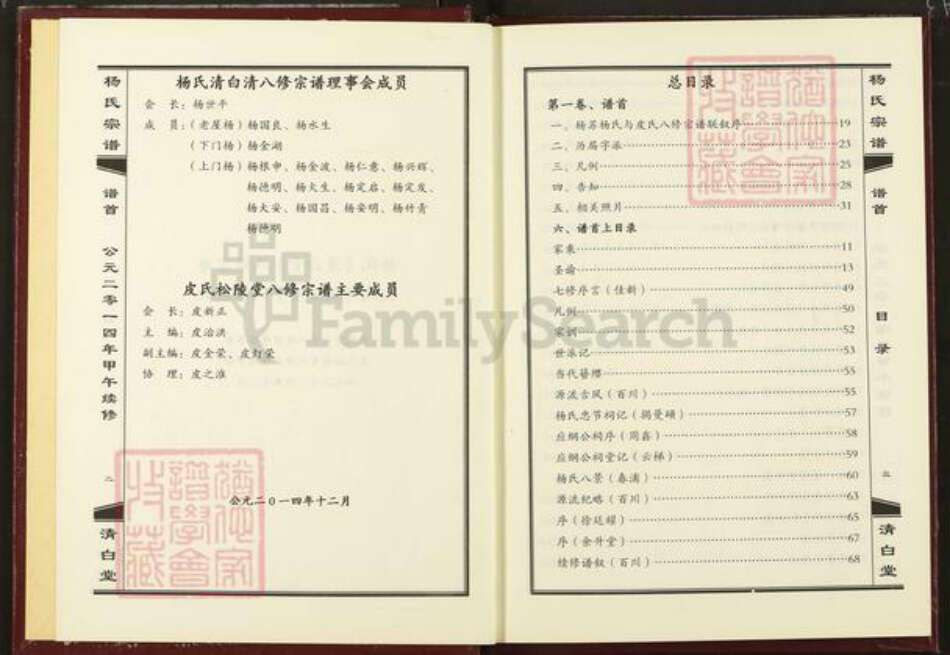 杨氏宗谱
谱首
公元二零一四年甲午续修
二
清白堂
杨氏清白清八修宗谱理事会成员
会　长：杨世平
成　员：（老屋杨）杨国良、杨水生
（下门杨）杨金湖
（上门杨）杨根申、杨金波、杨仁意、杨兴辉、
杨德明、杨大生、杨定启、杨定发、
杨大安、杨国昌、杨安明、杨竹青
杨德明
皮氏松陵堂八修宗谱主要成员
会　长：皮新正
主　编：皮治洪
副主编：皮金荣、皮灯荣
协　理：皮之淮
公元二0一四年十二月
FamilySearch
总目录
第一卷、谱首
一、杨苏杨氏与皮氏八修宗谱联叙序 19
二、历届字派 23
三、凡例 25
四、告知 28
五、相关照片 31
六、谱首上目录
家乘 11
圣谕 13
七修序言（佳新） 49
凡例 50
家训 52
世派记 53
当代簪缨 55
源流古风（百川） 55
杨氏忠节祠记（揭曼硕） 57
应纲公祠序（周鑫） 58
应纲公祠堂记（云梯） 59
杨氏八景（春浦） 60
源流纪略（百川） 63
序（徐廷耀） 65
序（余升堂） 67
续修谱叙（百川） 68
杨氏宗谱
谱首
目录
三
清白堂